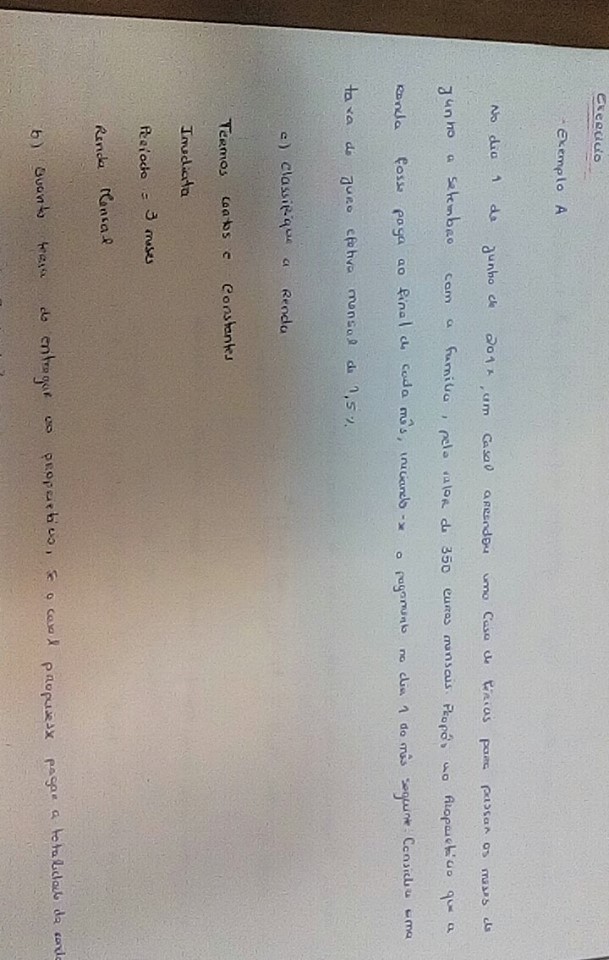 Exercício
- Exemplo A
No dia 1 de junho de 201x, um Casal arrendou uma Casa de férias para passar os meses de
junho a Setembro com a família, pelo valor de 350 euros mensais. Propôs ao Proprietário que a
Renda fosse paga ao final de cada mês, iniciando-se o pagamento no dia 1 do mês seguinte. Considere uma
taxa de juro efetiva mensal de 1,5%.
a) Classifique a Renda
Termos certos e Constantes
Imediata
Período = 3 meses
Renda Mensal
b) Quanto teria de entregar ao proprietário, se o casal propusesse pagar a totalidade da renda